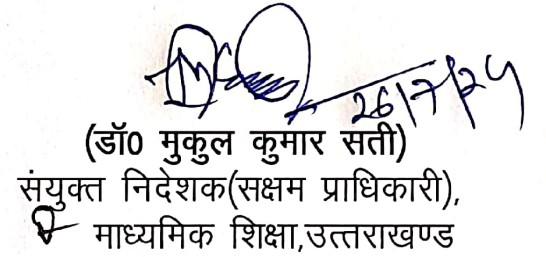 26/7/24
(डॉ0 मुकुल कुमार सती)
संयुक्त निदेशक(सक्षम प्राधिकारी),
माध्यमिक शिक्षा,उत्तराखण्ड